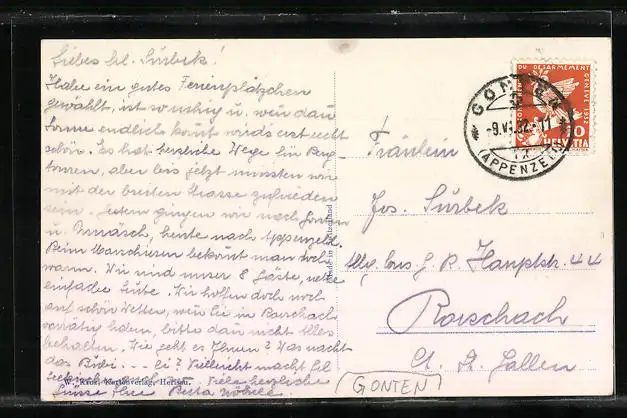 Liebes Frl. Sürbek!
Habe ein gutes Ferienplätzchen
gewählt, ist so ruhig u. wenn dan
Sonne endlich komt wirds erst recht
schön. Es hat herzliche Wege für Berg
touren, aber bis jetzt mussten wir
mit der breiten Strasse zufrieden
sein. Gestern gingen wir nach Gonten
u. Urnäsch, heute nach Appenzell.
Beim Marschieren bekomt man doch
warm. Wir sind unser 8 Gäste, nette
einfache Leute. Wir hoffen doch noch
auf schön Wetter, wenn Sie in Rorschach
vorrätig haben, bitte dan nicht Alles
behalten. Wie geht es Ihnen? Was macht
das Bubi Vielleicht macht Frl
auch Viele herzliche
Grüsse Ihre Berta
W. Kartenverlag, Herisau.
Made in Switzerland
DU DESARMEMENT
GENEVE 1932
HELVETIA
GONTEN
-9.VI.32.-11
(APPENZELL)
Fräulein
Jos. Sürbek
Hauptstr. 44
Rorschach
Ct. St. Gallen
(GONTEN)